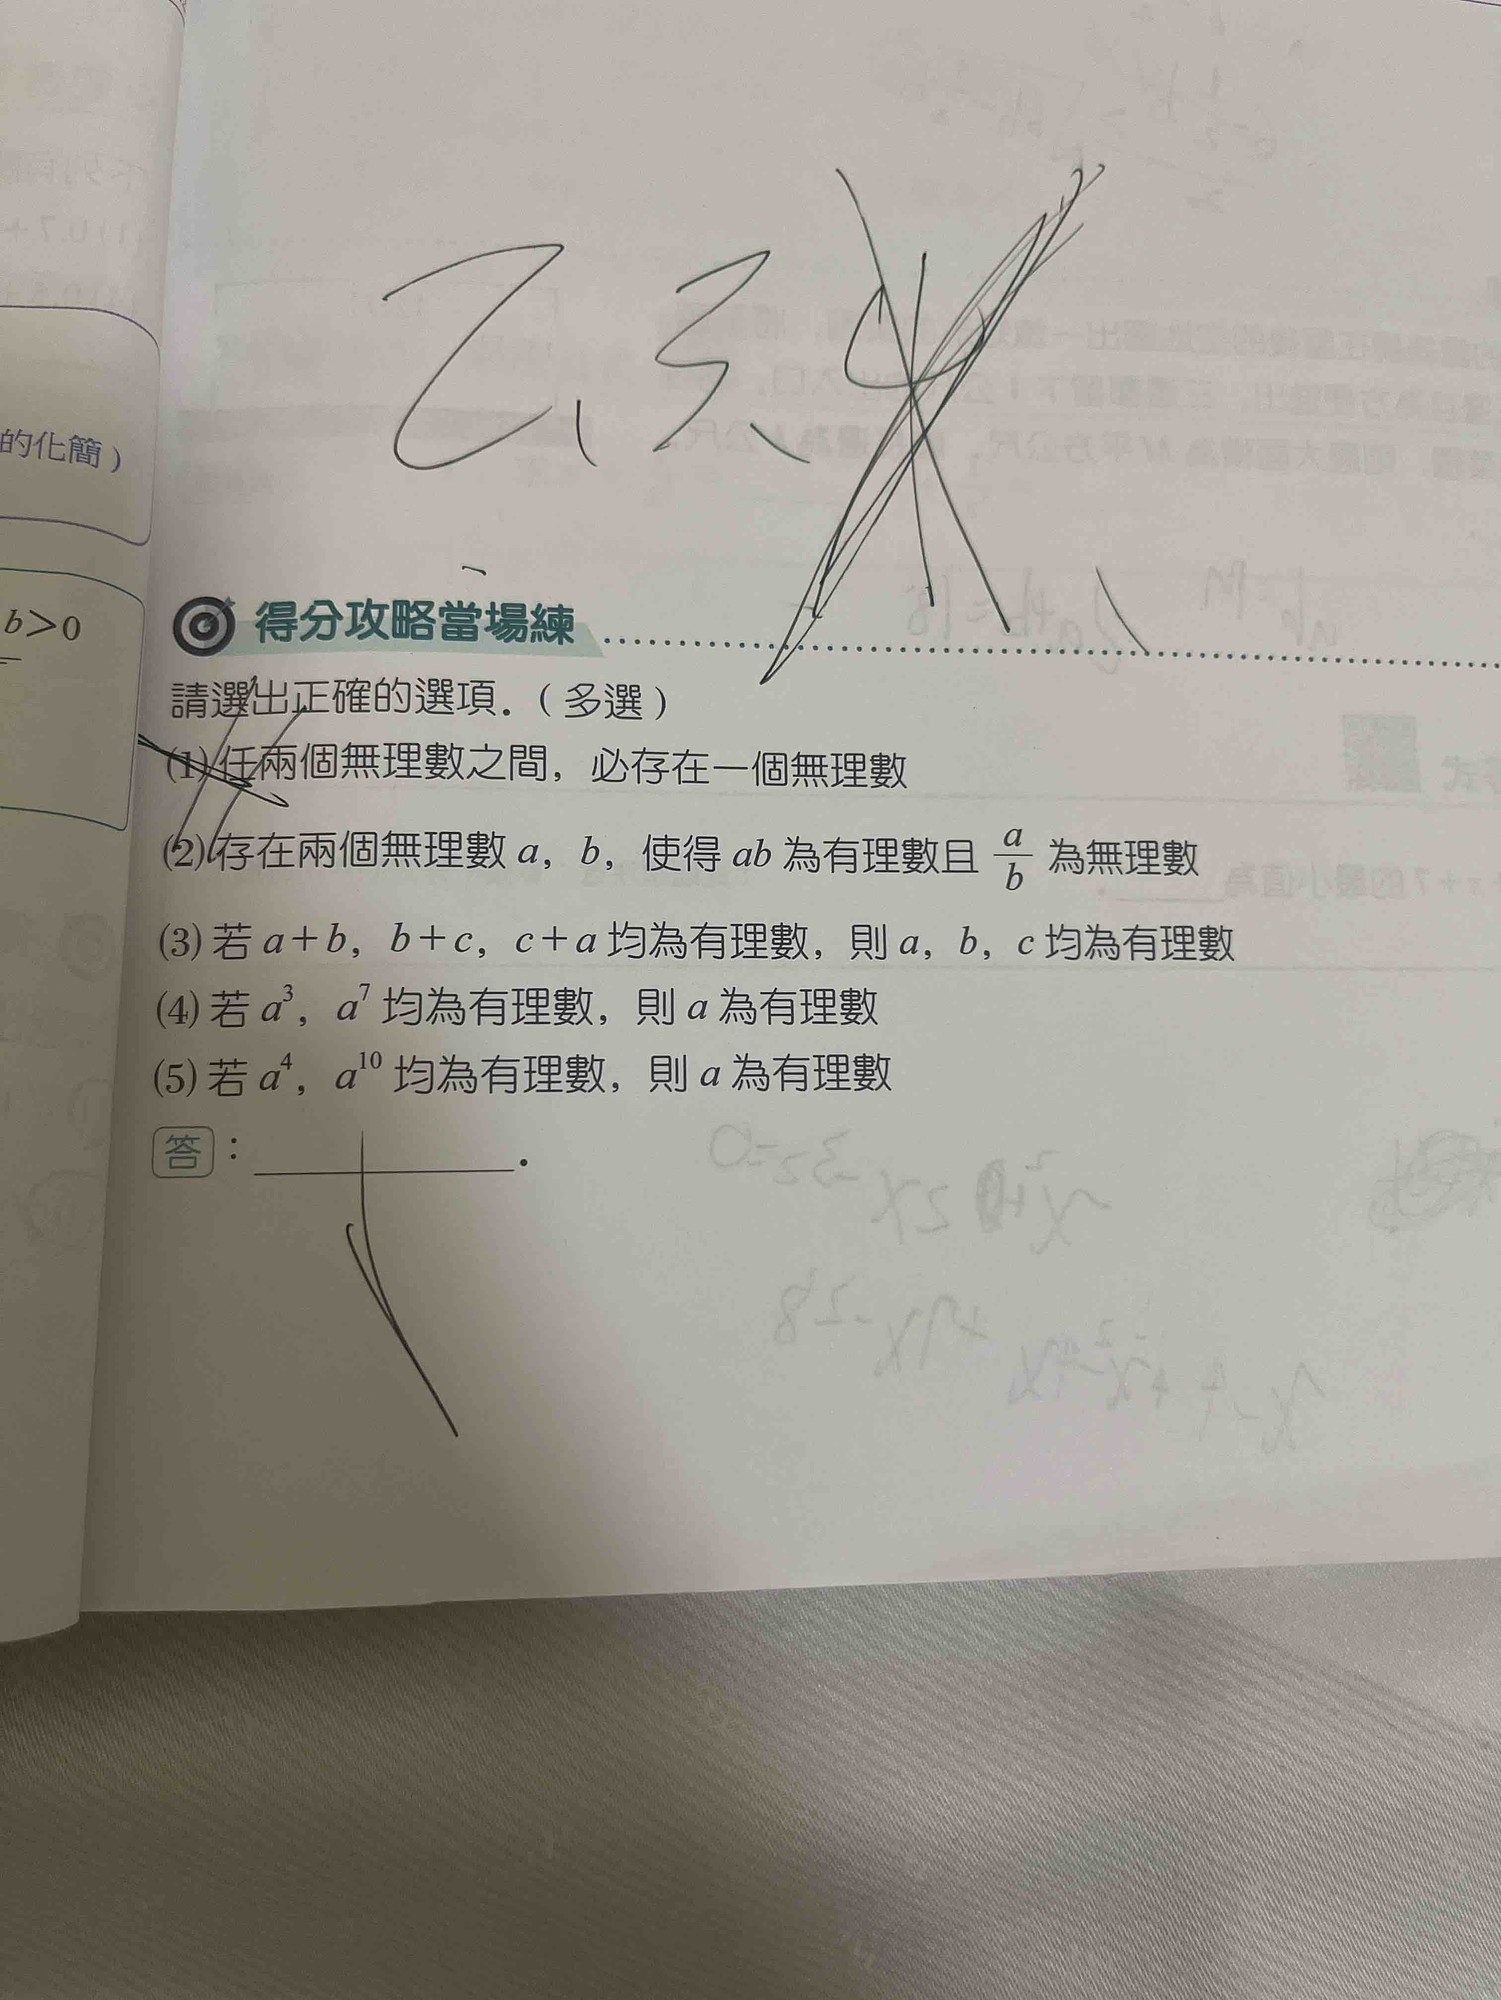 2, 3,
的化簡)
b>0
得分攻略當場練
請選出正確的選項.(多選)
(1)任兩個無理數之間,必存在一個無理數
(2)存在兩個無理數 a,b,使得 ab 為有理數且 a/b 為無理數
(3)若 a+b,b+c,c+a 均為有理數,則 a,b,c 均為有理數
(4)若 a³,a⁷ 均為有理數,則 a 為有理數
(5)若 a⁴,a¹⁰ 均為有理數,則 a 為有理數
答: